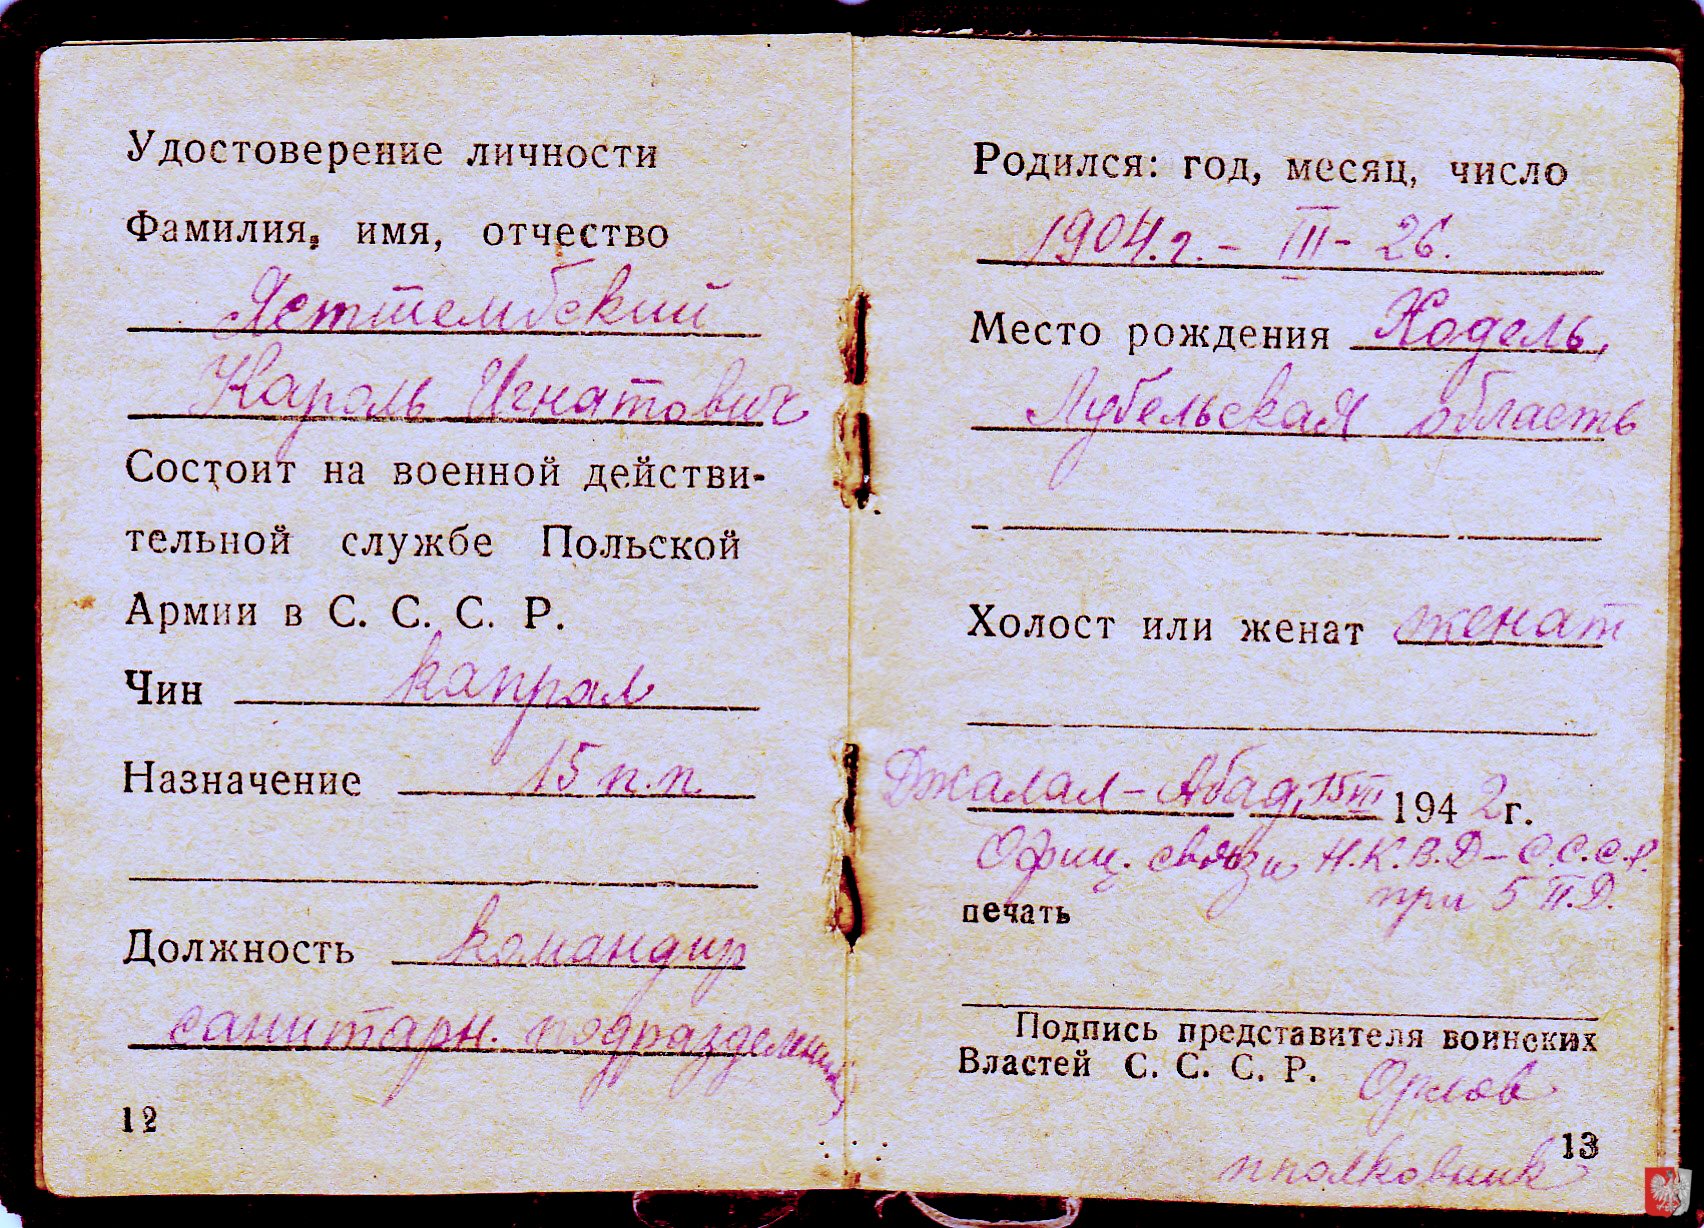 Удостоверение личности
Фамилия, имя, отчество
Ястшембский
Кароль Игнатович
Состоит на военной действи-
тельной службе Польской
Армии в С. С. С. Р.
Чин капрал
Назначение 15 п.п.
Должность командир
санитарн. подразделения
12
Родился: год, месяц, число
1904.г. – III – 26.
Место рождения Ходель,
Любельская область
Холост или женат женат
Джалал-Абад, 15 III 1942 г.
Офиц. связи Н.К.В.Д – С.С.С.Р.
при 5 П.Д.
печать
Подпись представителя воинских
Властей С. С. С. Р. Орлов
13
пполковник